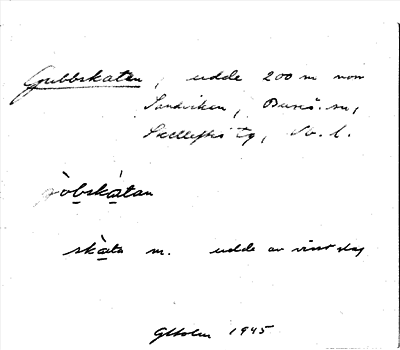 Gubbskatan, udde 200 m nov
Sandviken, Bureå sn,
Skellefteå tg, Vb. l.
gòbskàtan
skàta m. udde av visst slag
1945